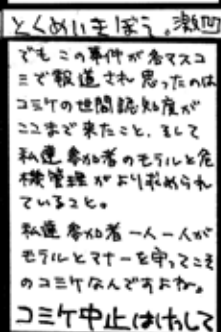 とくめいきぼう。激凹
でもこの事件が各マスコ
ミで報道され思ったのは
コミケの世間認知度が
ここまで来たこと、そして
私達参加者のモラルと危
機管理がより求められ
ていること。
私達参加者一人一人が
モラルとマナーを守ってこそ
のコミケなんですよね。
コミケ中止はけして